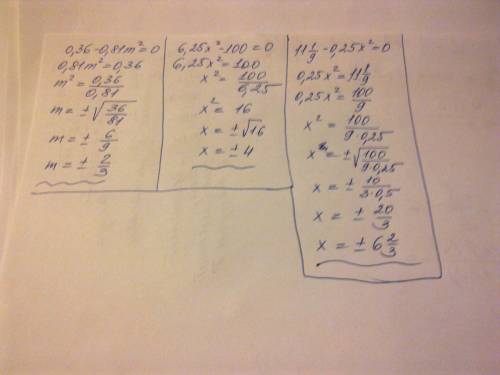 0,36-0,81m²=0
0,81m²=0,36
m²=0,36/0,81
m=±√(36/81)
m=±6/9
m=±2/3
6,25x²-100=0
6,25x²=100
x²=100/0,25
x²=16
x=±√16
x=±4
11 1/9-0,25x²=0
0,25x²=11 1/9
0,25x²=100/9
x²=100/(9·0,25)
x=±√(100/(9·0,25))
x=±10/(3·0,5)
x=±20/3
x=±6 2/3